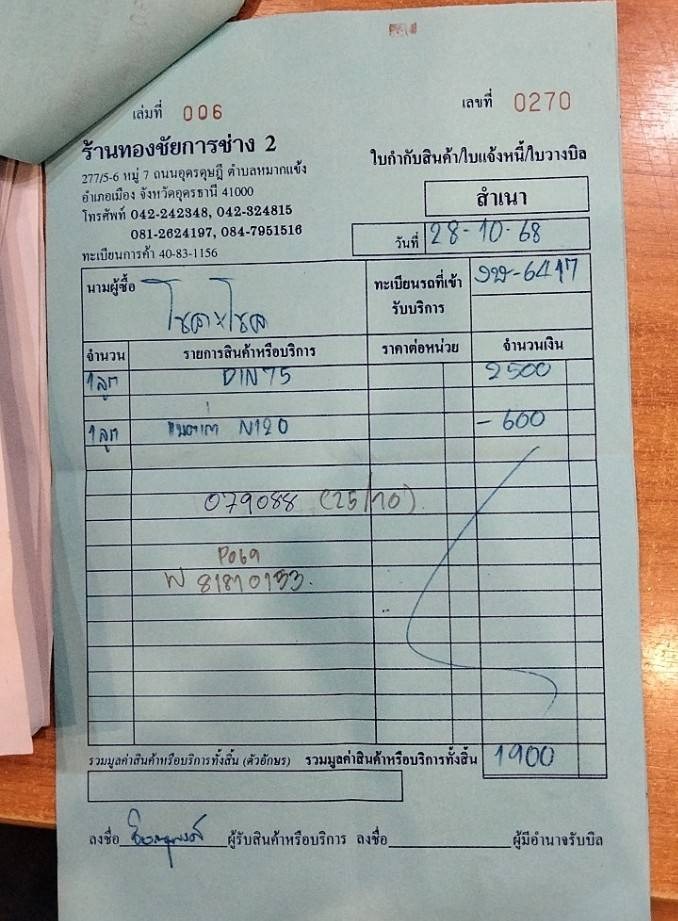 เล่มที่ 006
เลขที่ 0270
ร้านทองชัยการช่าง 2
277/5-6 หมู่ 7 ถนนอุดรดุษฎี ตำบลหมากแข้ง
อำเภอเมือง จังหวัดอุดรธานี 41000
โทรศัพท์ 042-242348, 042-324815
081-2624197, 084-7951516
ทะเบียนการค้า 40-83-1156
ใบกำกับสินค้า/ใบแจ้งหนี้/ใบวางบิล
สำเนา
วันที่ 28-10-68
นามผู้ซื้อ
ทะเบียนรถที่เข้ารับบริการ -6417
จำนวน รายการสินค้าหรือบริการ ราคาต่อหน่วย จำนวนเงิน
1 ลูก DIN 75 2500
1 ลูก N120 - 600
079088 (25/10)
W 81810153.
รวมมูลค่าสินค้าหรือบริการทั้งสิ้น (ตัวอักษร) รวมมูลค่าสินค้าหรือบริการทั้งสิ้น 1900
ลงชื่อ ผู้รับสินค้าหรือบริการ ลงชื่อ ผู้มีอำนาจรับบิล